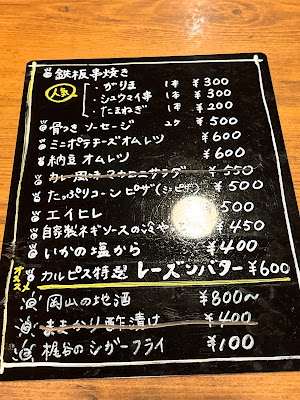 鉄板串焼き
人気
・がり玉 1本 ¥300
・シュウマイ串 1本 ¥300
・たまねぎ 1本 ¥200
骨つきソーセージ 2ケ ¥500
ミニポテチーズオムレツ ¥600
納豆オムレツ ¥600
カレー風味マカロニサラダ ¥550
たっぷりコーンピザ ¥500
エイヒレ 500
自家製ネギソースの冷や ¥450
いかの塩から ¥400
オススメ カルピス特選 レーズンバター ¥600
岡山の地酒 ¥800〜
ままかり酢漬け ¥400
梶谷のシガーフライ ¥100